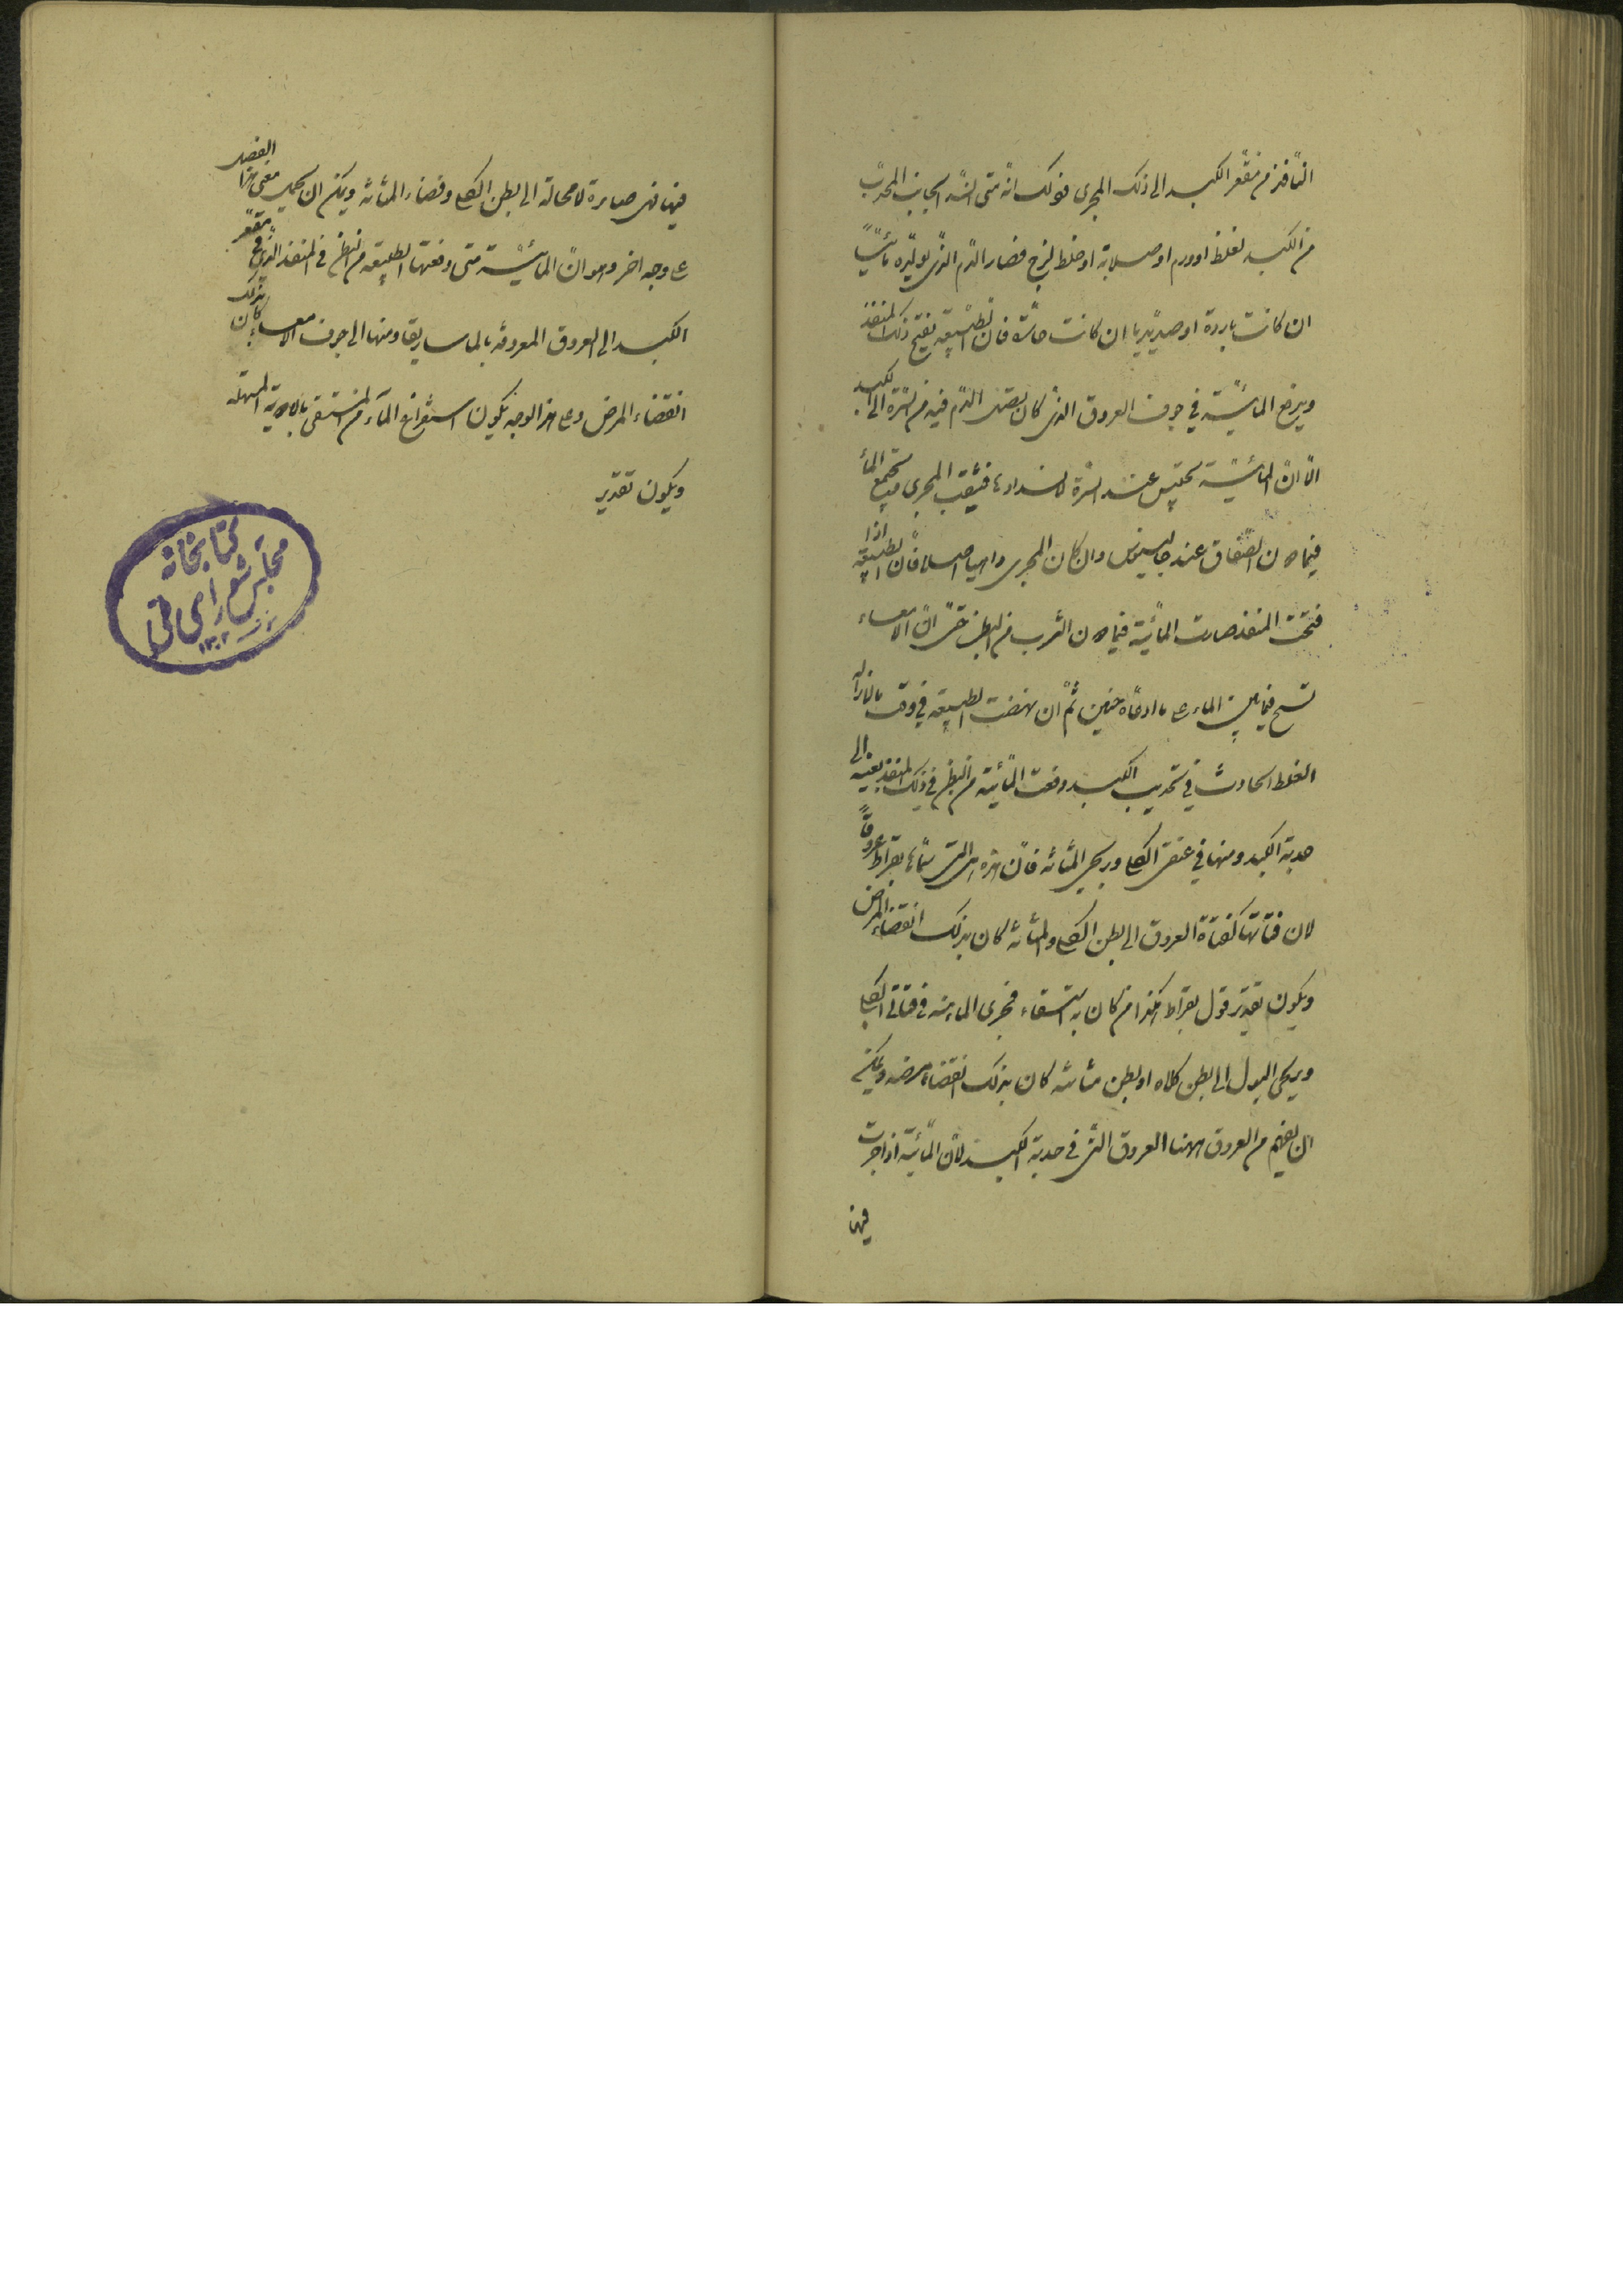 النّافذ من مقعّر الكبد الى ذلك المجرى فذلك انّه متى انسدّ الجانب المحدّب
من الكبد لغلظ او ورم او صلابة او خلط لزج فصار الدّم الذّى يولّده مائيّاً
ان كانت باردة او صديديا ان كانت حارّة فان الطّبيعة تفتح ذلك المنفذ
ويدفع المائيّة في جوف العروق الذى كان يصل الدّم فيه من السّرة الى الكبد
الّا انّ المائيّة تحتبس عند السّرة لانسدادها فينثقب المجرى فيجتمع الماء
فيما دون الصّفاق عند جالينوس وان كان المجرى واهيا اصلا فانّ الطبيعة اذا
فتحت المنفذ صارت المائيّة فيما دون الثرب من البطن حتى انّ الامعاء
تسبح فيما بين الماء على ما ادعاه حنين ثمّ ان نهضت الطبيعة في وقت بالازالة
الغلظ الحادث في تحديب الكبد دفعت المائيّة من البطن في ذلك المنفذ بعينه الى
حدبة الكبد ومنها في عنقى الكلى ومجرى المثانة فانّ هذه هى التى سمّاها بقراط عروقاً
لان قناتها كقناة العروق الى بطن الكلى والمثانة كان بذلك انقضاء المرض
ويكون تقدير قول بقراط هكذا من كان به استسقاء فجرى الماء منه في قناتى الكلى
ومجرى البول الى بطن كلاه او بطن مثانته كان بذلك انقضاء مرضه ويمكن
ان يفهم من العروق ههنا العروق التى في حدبة الكبد لانّ المائيّة اذا جرت
فيها
فيها فهى صايرة لا محالة الى بطن الكلى وفضاء المثانة ويمكن ان يحمل معنى هذا الفصل
على وجه اخر وهو انّ المائيّة متى دفعتها الطبيعة من البطن في المنفذ الذى في مقعّر
الكبد الى العروق المعروفة بالماساريقا ومنها الى جوف الامعاء كان بذلك
انقضاء المرض وعلى هذا الوجه يكون استفراغ الماء من المستسقى بالادوية المسهلة
ويكون تقدير
كتابخانه
مجلس شورای ملی
۱۳۰۲